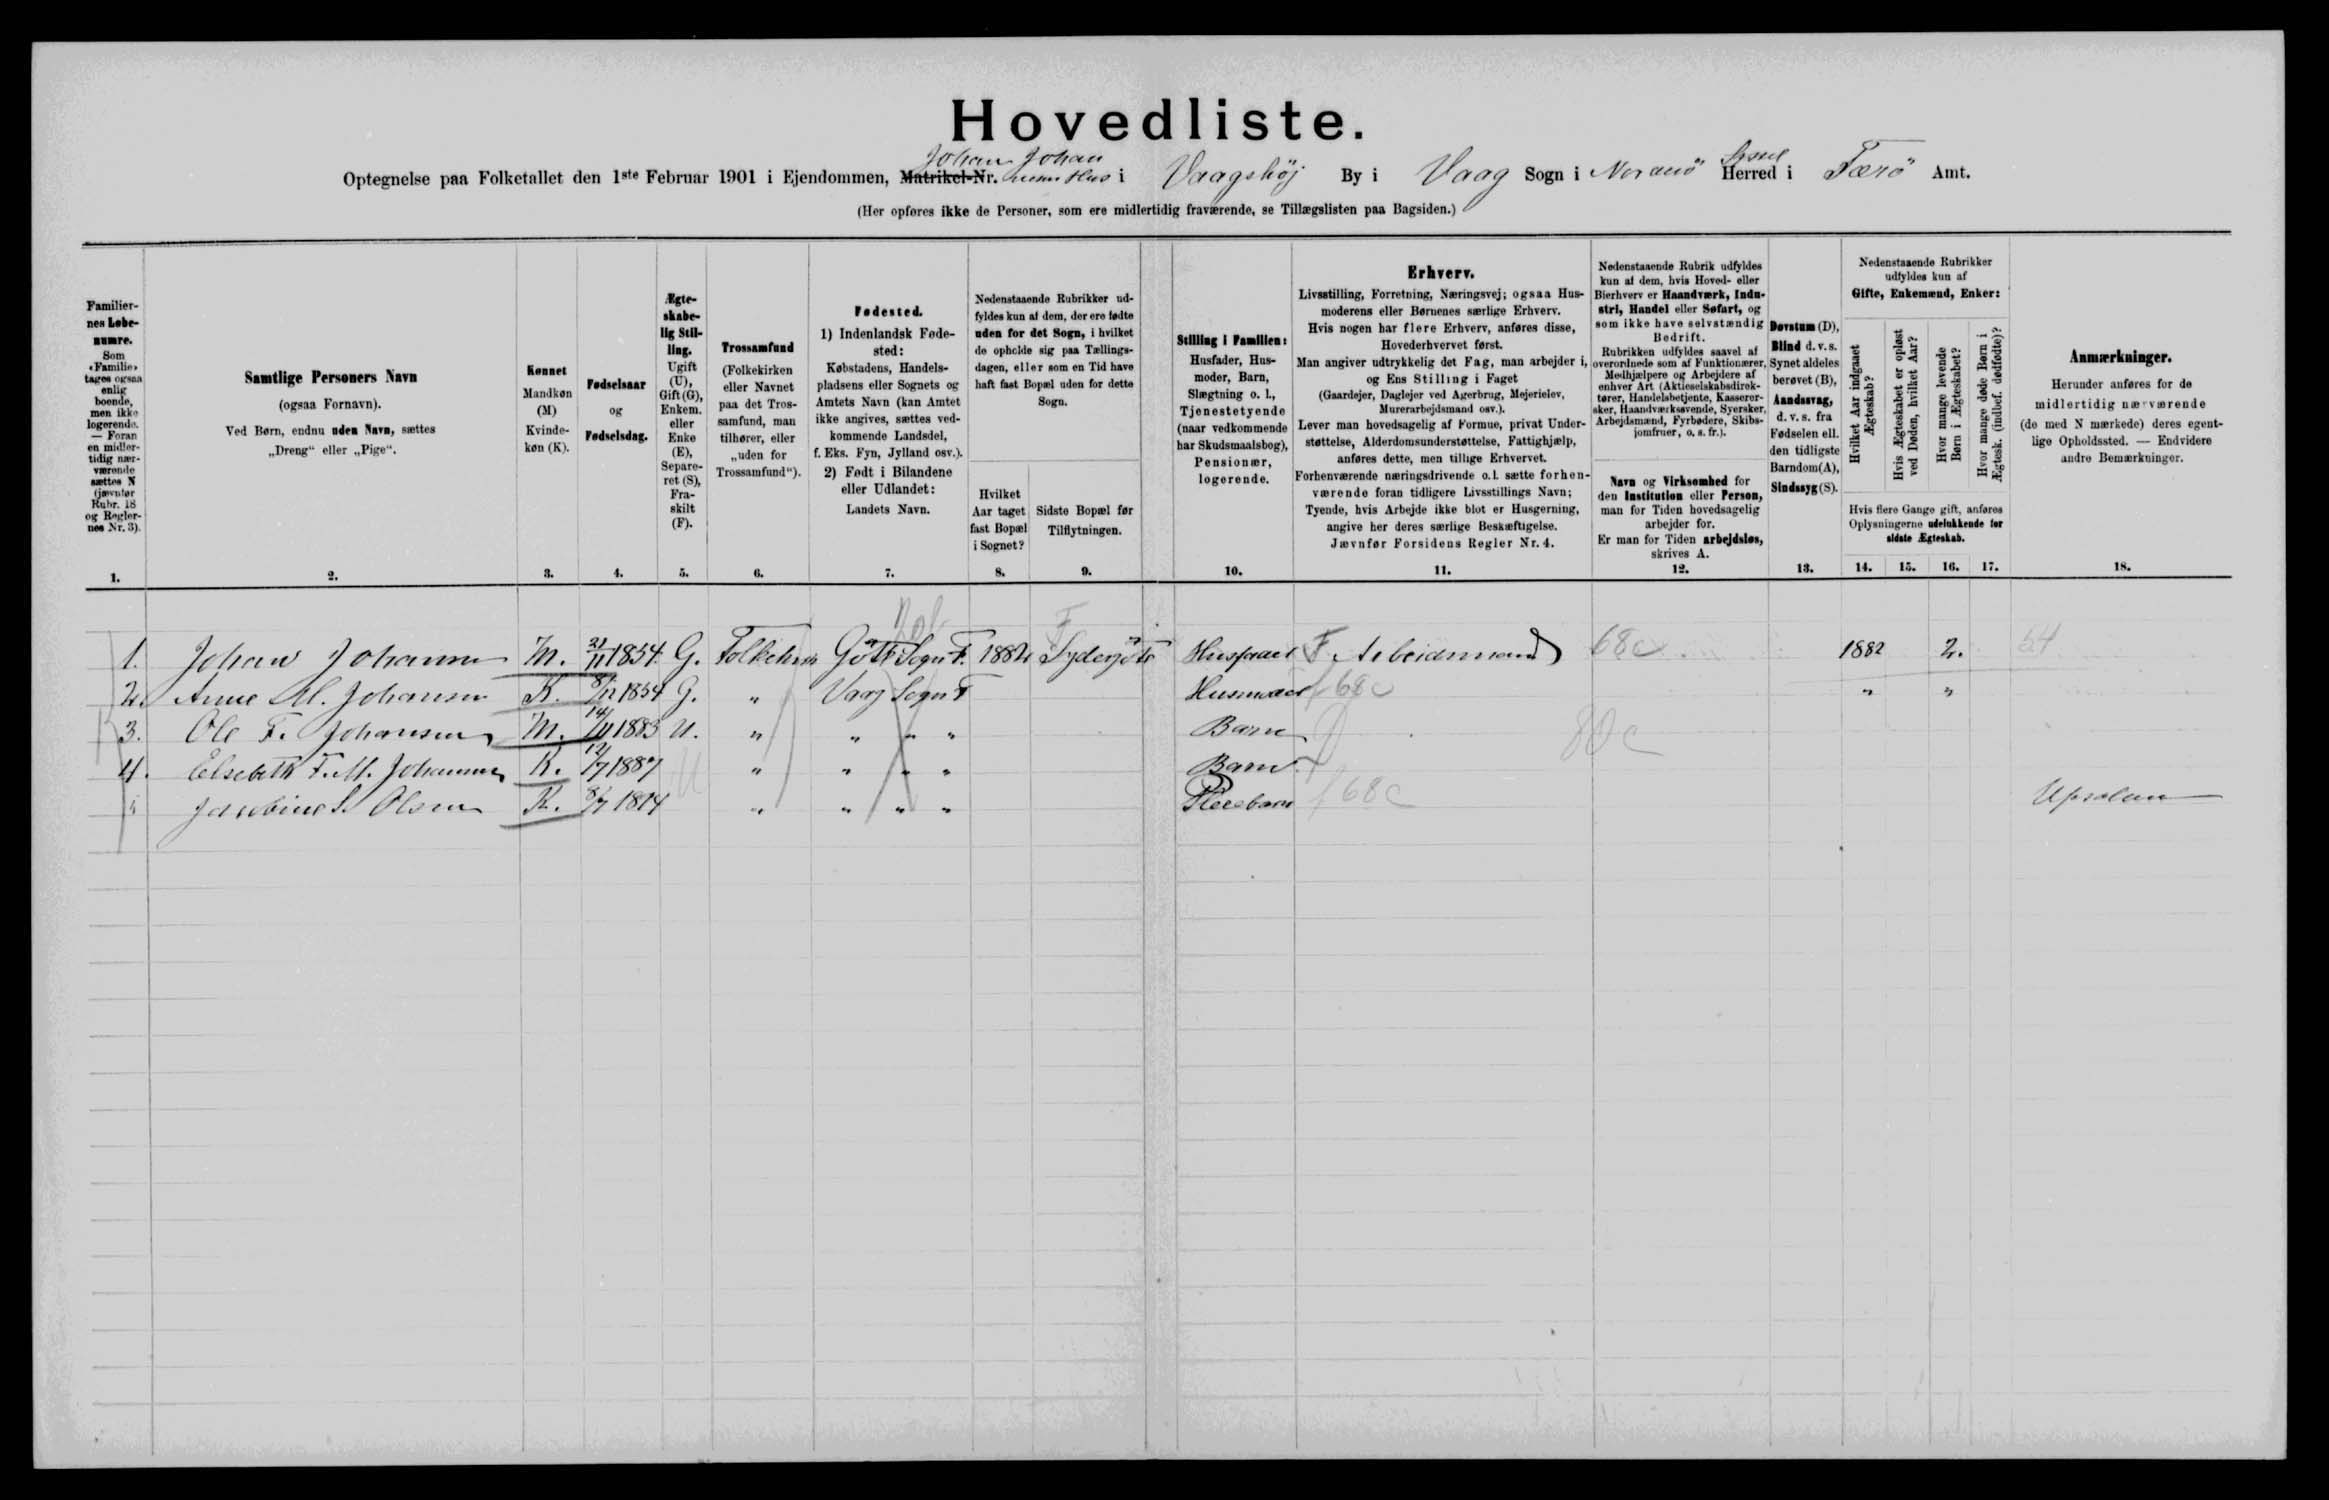 Hovedliste.
Optegnelse paa Folketallet den 1ste Februar 1901 i Ejendommen, Matrikel-Nr. Johan Johan Hus i Vaagshöj By i Vaag Sogn i Norderö Syssel Herred i Færö Amt.
(Her opføres ikke de Personer, som ere midlertidig fraværende, se Tillægslisten paa Bagsiden.)
Familiernes Løbenumre.
Som «Familie» tages ogsaa enlig boende, men ikke logerende. — Foran en midlertidig nærværende sættes N (jævnfør Rubr. 18 og Reglernes Nr. 3).
1.
Samtlige Personers Navn
(ogsaa Fornavn).
Ved Børn, endnu uden Navn, sættes
„Dreng“ eller „Pige“.
2.
Kønnet
Mandkøn (M)
Kvindekøn (K).
3.
Fødselsaar
og
Fødselsdag.
4.
Ægteskabelig Stilling.
Ugift (U), Gift (G), Enkem. eller Enke (E), Separeret (S), Fraskilt (F).
5.
Trossamfund
(Folkekirken eller Navnet paa det Trossamfund, man tilhører, eller „uden for Trossamfund“).
6.
Fødested.
1) Indenlandsk Fødested:
Købstadens, Handelspladsens eller Sognets og Amtets Navn (kan Amtet ikke angives, sættes vedkommende Landsdel, f. Eks. Fyn, Jylland osv.).
2) Født i Bilandene eller Udlandet:
Landets Navn.
7.
Nedenstaaende Rubrikker udfyldes kun af dem, der ere fødte uden for det Sogn, i hvilket de opholde sig paa Tællingsdagen, eller som en Tid have haft fast Bopæl uden for dette Sogn.
Hvilket Aar taget fast Bopæl i Sognet?
8.
Sidste Bopæl før Tilflytningen.
9.
Stilling i Familien:
Husfader, Husmoder, Barn, Slægtning o. l., Tjenestetyende (naar vedkommende har Skudsmaalsbog), Pensionær, logerende.
10.
Erhverv.
Livsstilling, Forretning, Næringsvej; ogsaa Husmoderens eller Børnenes særlige Erhverv.
Hvis nogen har flere Erhverv, anføres disse, Hovederhvervet først.
Man angiver udtrykkelig det Fag, man arbejder i, og Ens Stilling i Faget
(Gaardejer, Daglejer ved Agerbrug, Mejerielev, Murerarbejdsmand osv.).
Lever man hovedsagelig af Formue, privat Understøttelse, Alderdomsunderstøttelse, Fattighjælp, anføres dette, men tillige Erhvervet.
Forhenværende næringsdrivende o. l. sætte forhenværende foran tidligere Livsstillings Navn;
Tyende, hvis Arbejde ikke blot er Husgerning, angive her deres særlige Beskæftigelse.
Jævnfør Forsidens Regler Nr. 4.
11.
Nedenstaaende Rubrik udfyldes kun af dem, hvis Hoved- eller Bierhverv er Haandværk, Industri, Handel eller Søfart, og som ikke have selvstændig Bedrift.
Rubrikken udfyldes saavel af overordnede som af Funktionærer, Medhjælpere og Arbejdere af enhver Art (Aktieselskabsdirektører, Handelsbetjente, Kasserersker, Haandværkssvende, Syersker, Arbejdsmænd, Fyrbødere, Skibsjomfruer, o. s. fr.).
Navn og Virksomhed for den Institution eller Person, man for Tiden hovedsagelig arbejder for.
Er man for Tiden arbejdsløs, skrives A.
12.
Døvstum (D), Blind d. v. s. Synet aldeles berøvet (B), Aandssvag, d. v. s. fra Fødselen ell. den tidligste Barndom (A), Sindssyg (S).
13.
Nedenstaaende Rubrikker udfyldes kun af
Gifte, Enkemænd, Enker:
Hvilket Aar indgaaet Ægteskab?
Hvis Ægteskabet er opløst ved Døden, hvilket Aar?
Hvor mange levende Børn i Ægteskabet?
Hvor mange døde Børn i Ægtesk. (indbef. dødfødte)?
Hvis flere Gange gift, anføres Oplysningerne udelukkende for sidste Ægteskab.
14. 15. 16. 17.
Anmærkninger.
Herunder anføres for de midlertidig nærværende (de med N mærkede) deres egentlige Opholdssted. — Endvidere andre Bemærkninger.
18.
1. Johan Johansen M. 21/11 1854 G. Folkekirk Göte Sogn F. 1882 Syderjöte Husfader F Arbeidsmand 68c 1882 2. 54
2. Anne M. Johansen K. 8/12 1854 G. " Vaag Sogn F Husmoder f 68c " "
3. Ole F. Johansen M. 14/11 1883 U. " " " " Barn 80c
4. Elsebeth F. M. Johansen K. 12/7 1887 U " " " " Barn
Jacobine S. Olsen K. 8/7 1814 " " " " Pleiebarn f 68c